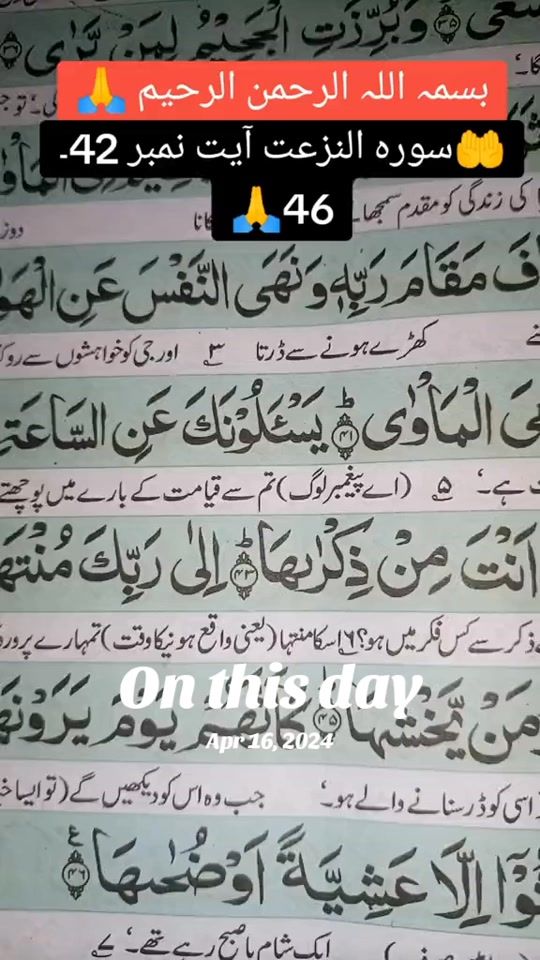 سعى ۝۳۵ وَبُرِّزَتِ الْجَحِيْمُ لِمَنْ يَّرٰى ۝۳۶
بسمہ اللہ الرحمن الرحیم 🙏
🤲سورہ النزعت آیت نمبر 42۔
46🙏
کی زندگی کو مقدم سمجھا۔
مَقَامَ رَبِّهٖ وَنَهَى النَّفْسَ عَنِ
کھڑے ہونے سے ڈرتا ۳ اور جی کو خواہشوں سے
الْمَاْوٰى ۝۴۱ يَسْـَٔلُوْنَكَ عَنِ السَّاعَةِ
ہے۔‘ ۵ (اے پیغمبر لوگ) تم سے قیامت کے بارے میں پوچھتے
اَنْتَ مِنْ ذِكْرٰىهَا ۝۴۳ اِلٰى رَبِّكَ
ذکر سے کس فکر میں ہو؟ ۶ اسکا منتہا (یعنی واقع ہونیکا وقت) تمہارے
مَنْ يَّخْشٰىهَا ۝۴۵ كَاَنَّهُمْ يَوْمَ
On this day
Apr 16, 2024
اسی کو ڈر سنانے والے ہو۔‘ جب وہ اس کو دیکھیں گے (تو ایسا
اِلَّا عَشِيَّةً اَوْ ضُحٰىهَا ۝۴۶ ع
ایک شام یا صبح رہے تھے۔‘ ۷